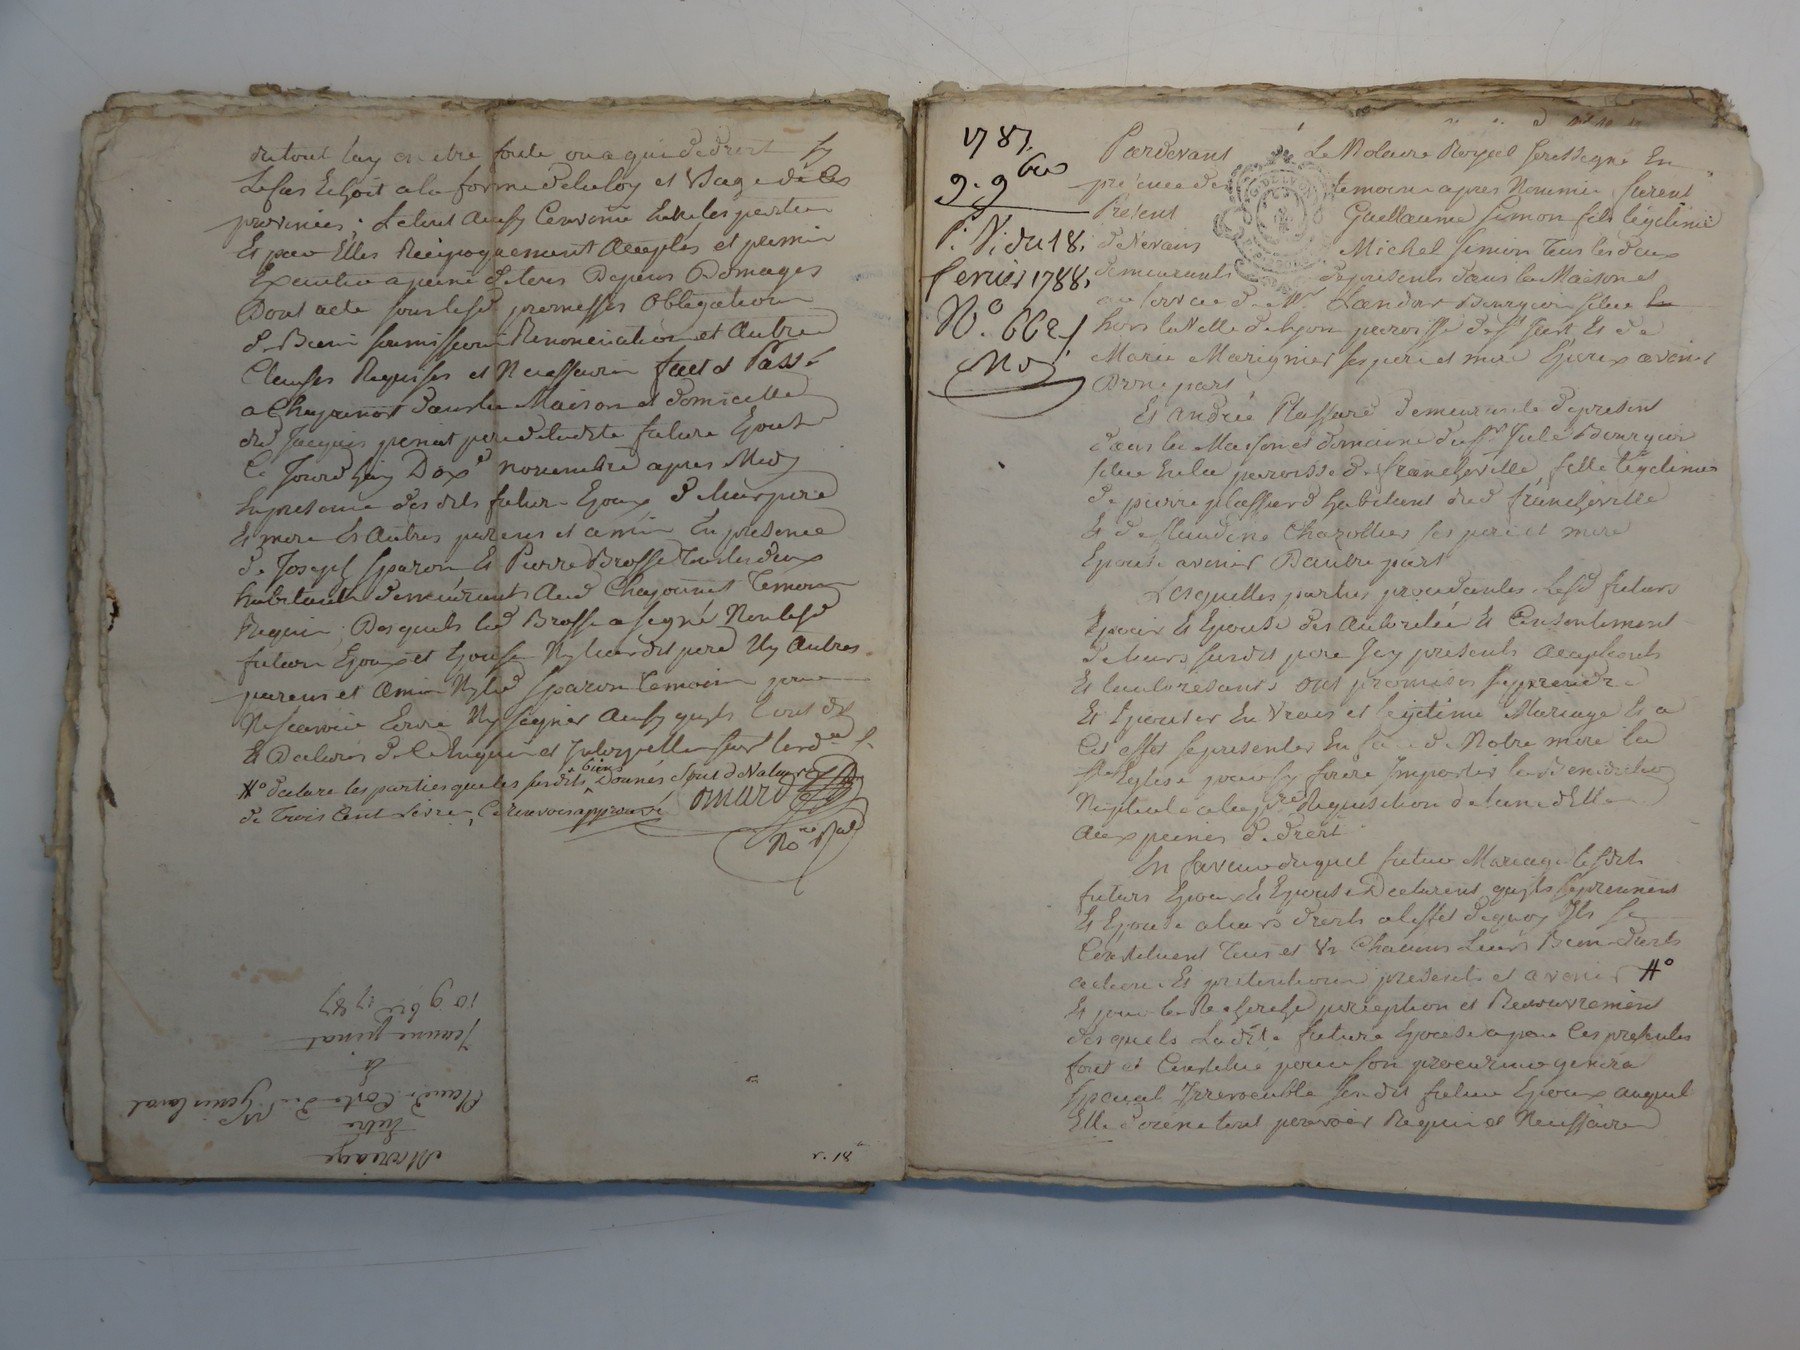 du tout luy en etre faite ou a qui de droit sy
Le cas Echoit a la forme de la loy et Usage de Ces
provinces ; Le tout Ainsy Convenu Entre les parties
Et par Elles Reciproquement Acceptés et promis
Executer a peine de tous Depens Domages
Dont acte sous lesd promesses Obligations
de Biens soumissions Renonciations et Autres
Clauses Requises et Necessaires fait et Passé
a Chaponost dans la Maison et domicille
dud Jacques pere de ladite future Epouse
Ce Jourdhuy Dix novembre apres Midy
En presence des dits futurs Epoux de leurs pere
Et mere Et Autres parens et amis En presence
de Joseph Sparon Et Pierre Brosse Tous les deux
habitants demeurants Aud Chaponost Temoins
Requis ; Desquels led Brosse a signé Non lesd
futurs Epoux et Epouse Ny leurdit pere Ny Autres
parens et Amis Ny led Sparon Temoin pour
Ne scavoir Ecrire Ny signer Ainsy quils l'ont dit
Et Declaré de Ce Enquis et Interpellés
#° declare les parties que les susdits biens Donnés sont de Valeur
de Trois Cent Livres, Ce renvoi approuvé
No.re Ral
Mariage
Entre
Claude Coste de St Genis laval
à
Jeanne
10 9bre 1787
1787.
9. 9bre
du 18.
fevrier 1788.
N°. 662
Pardevant Le Notaire Royal soussigné En
presence des temoins apres Nommés furent
Present Guillaume Simon fils légitime
Michel Simon Tous les deux
demeurants de present dans la Maison et
au service de Mr Bourgeois
hors la Ville de lyon paroisse de St Just Et de
Marie Marignier ses pere et mere Epoux avenir
D'Une part
Et Andrée Plassard demeurante de present
dans la Maison et domaine du Sr Bourgeois
situé En la paroisse de francheville fille légitime
de pierre plassard habitant dud francheville
Et de Claudine ses pere et mere
Epouse avenir D'autre part
Lesquelles parties procedantes lesd futurs
Epoux Et Epouse des Autorités Et Consentement
de leurs susdit pere Icy presents Acceptants
Et l'autorisants ont promis se prendre
Et Epouser En Vrais et legitime Mariage Et a
Cet effet se presenter En face de Notre mere la
Ste Eglise pour sy faire Impartir la Benediction
Nuptiale a la pre Requisition de l'une d'Elles
Aux peines de droit
En faveur duquel futur Mariage lesdits
futurs Epoux Et Epouse Declarent quils se prennent
Et Epouse a leurs droits a l'effet de quoy Ils se
Constituent Tous et Un Chacuns leurs Biens droits
actions Et pretentions presents et avenir #°
Et pour la Recherche perception et Recouvrement
desquels Ladite future Epouse a par Ces presentes
fait et Constitué pour son procureur general
Special Irrevocable sondit futur Epoux auquel
Elle donne tout pouvoir Requis et Necessaire